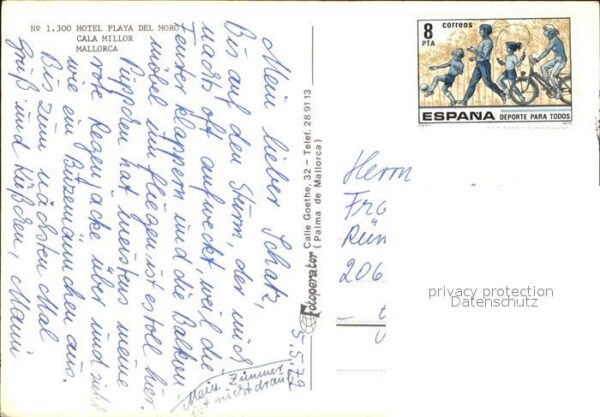 Nº 1.300 HOTEL PLAYA DEL MORO
CALA MILLOR
MALLORCA
Mein lieber Schatz,
Bis auf den Sturm, der mich
nachts oft aufweckt, weil die
Fenster klappern und die Balkon
möbel rum fliegen, ist es toll hier.
Püppchen hat meistens meine
rote Regenjacke über und sieht
wie ein Butzemännchen aus.
Bis zum nächsten Mal
Gruß und Küßchen, Mami
5.5.79
Mein Zimmer
ist nicht dran
Fotoperator Calle Goethe, 32 – Telef. 28 91 13
(Palma de Mallorca)
8 correos
PTA
ESPAÑA DEPORTE PARA TODOS
Herrn
Fra
Rün
206
privacy protection
Datenschutz